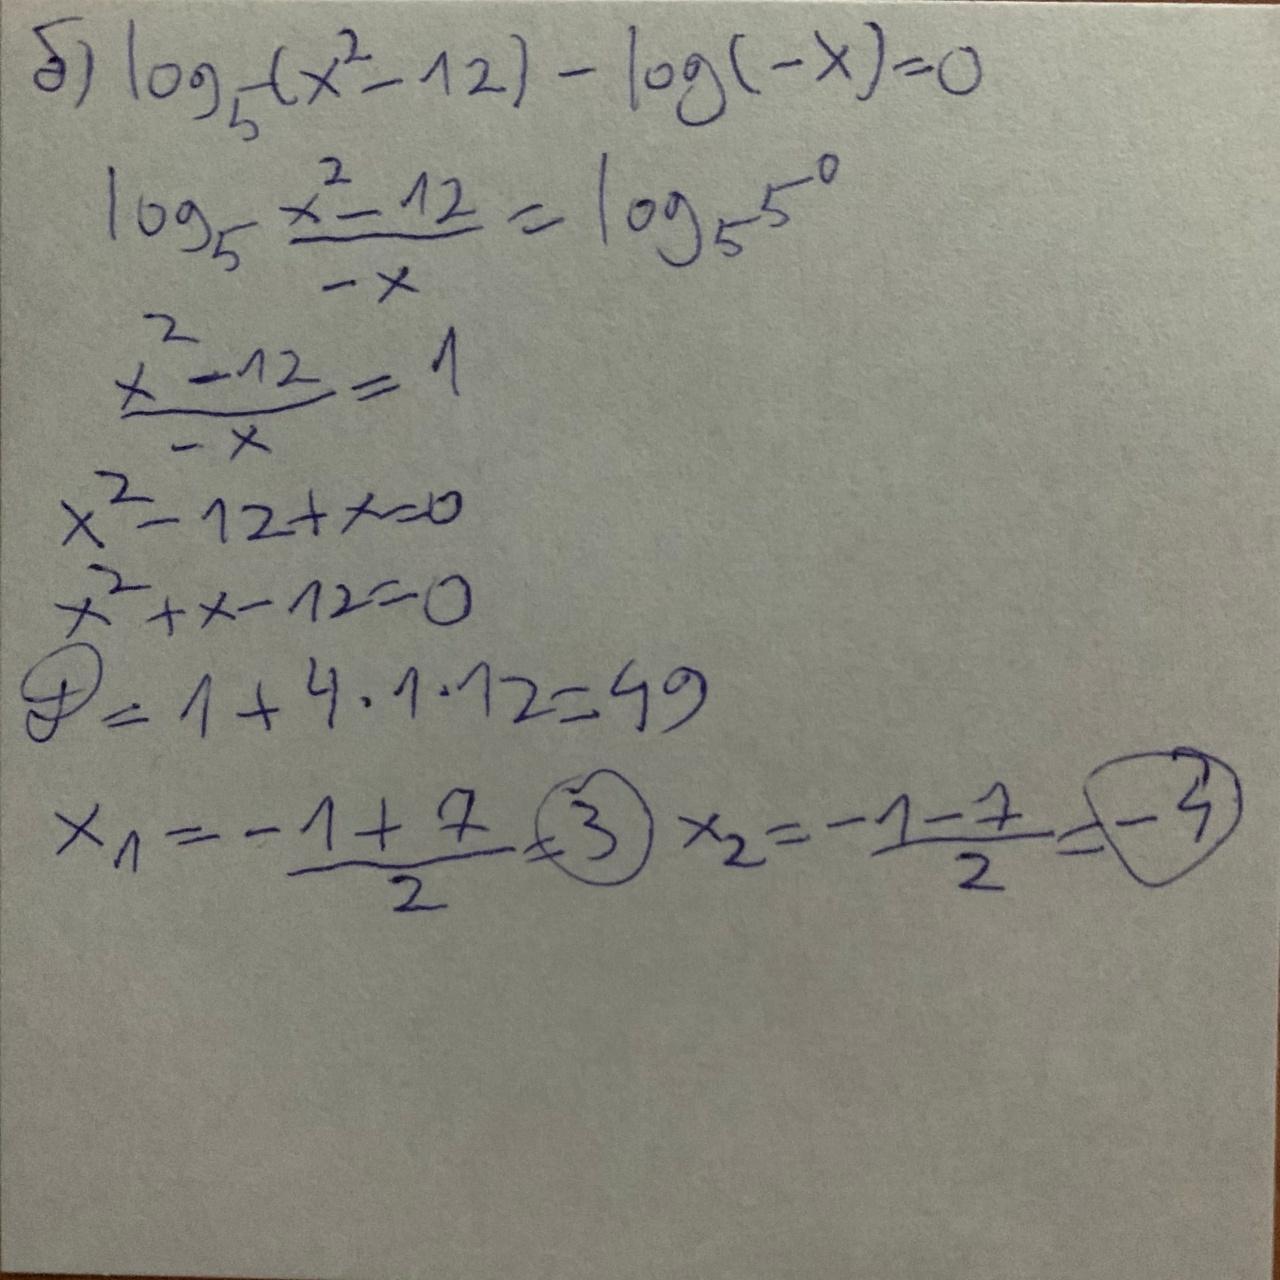 б) log₅(x² - 12) - log(-x) = 0
log₅ (x² - 12)/(-x) = log₅ 5⁰
(x² - 12)/(-x) = 1
x² - 12 + x = 0
x² + x - 12 = 0
D = 1 + 4 · 1 · 12 = 49
x₁ = (-1 + 7)/2 = 3 x₂ = (-1 - 7)/2 = -4